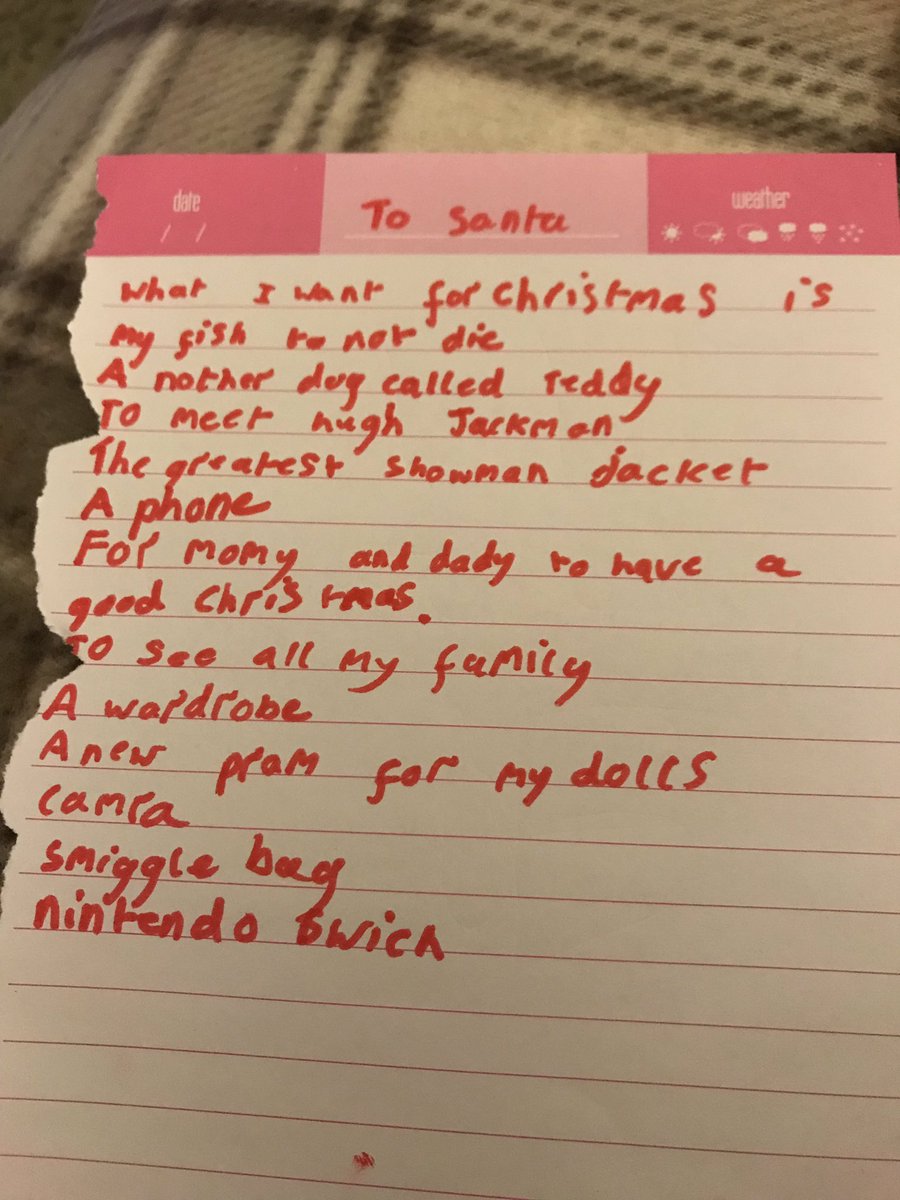 date
To Santa
weather
/ /
What I want for christmas is
my fish to not die
A nother dog called Teddy
To meet hugh Jackman
The greatest showman jacket
A phone
For momy and dady to have a
good christmas.
To see all my family
A wardrobe
A new pram for my dolls
camra
smiggle bag
nintendo swich